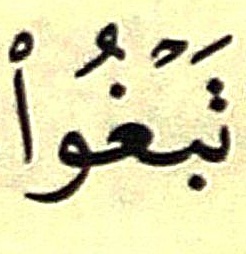 تَبْغُواْ